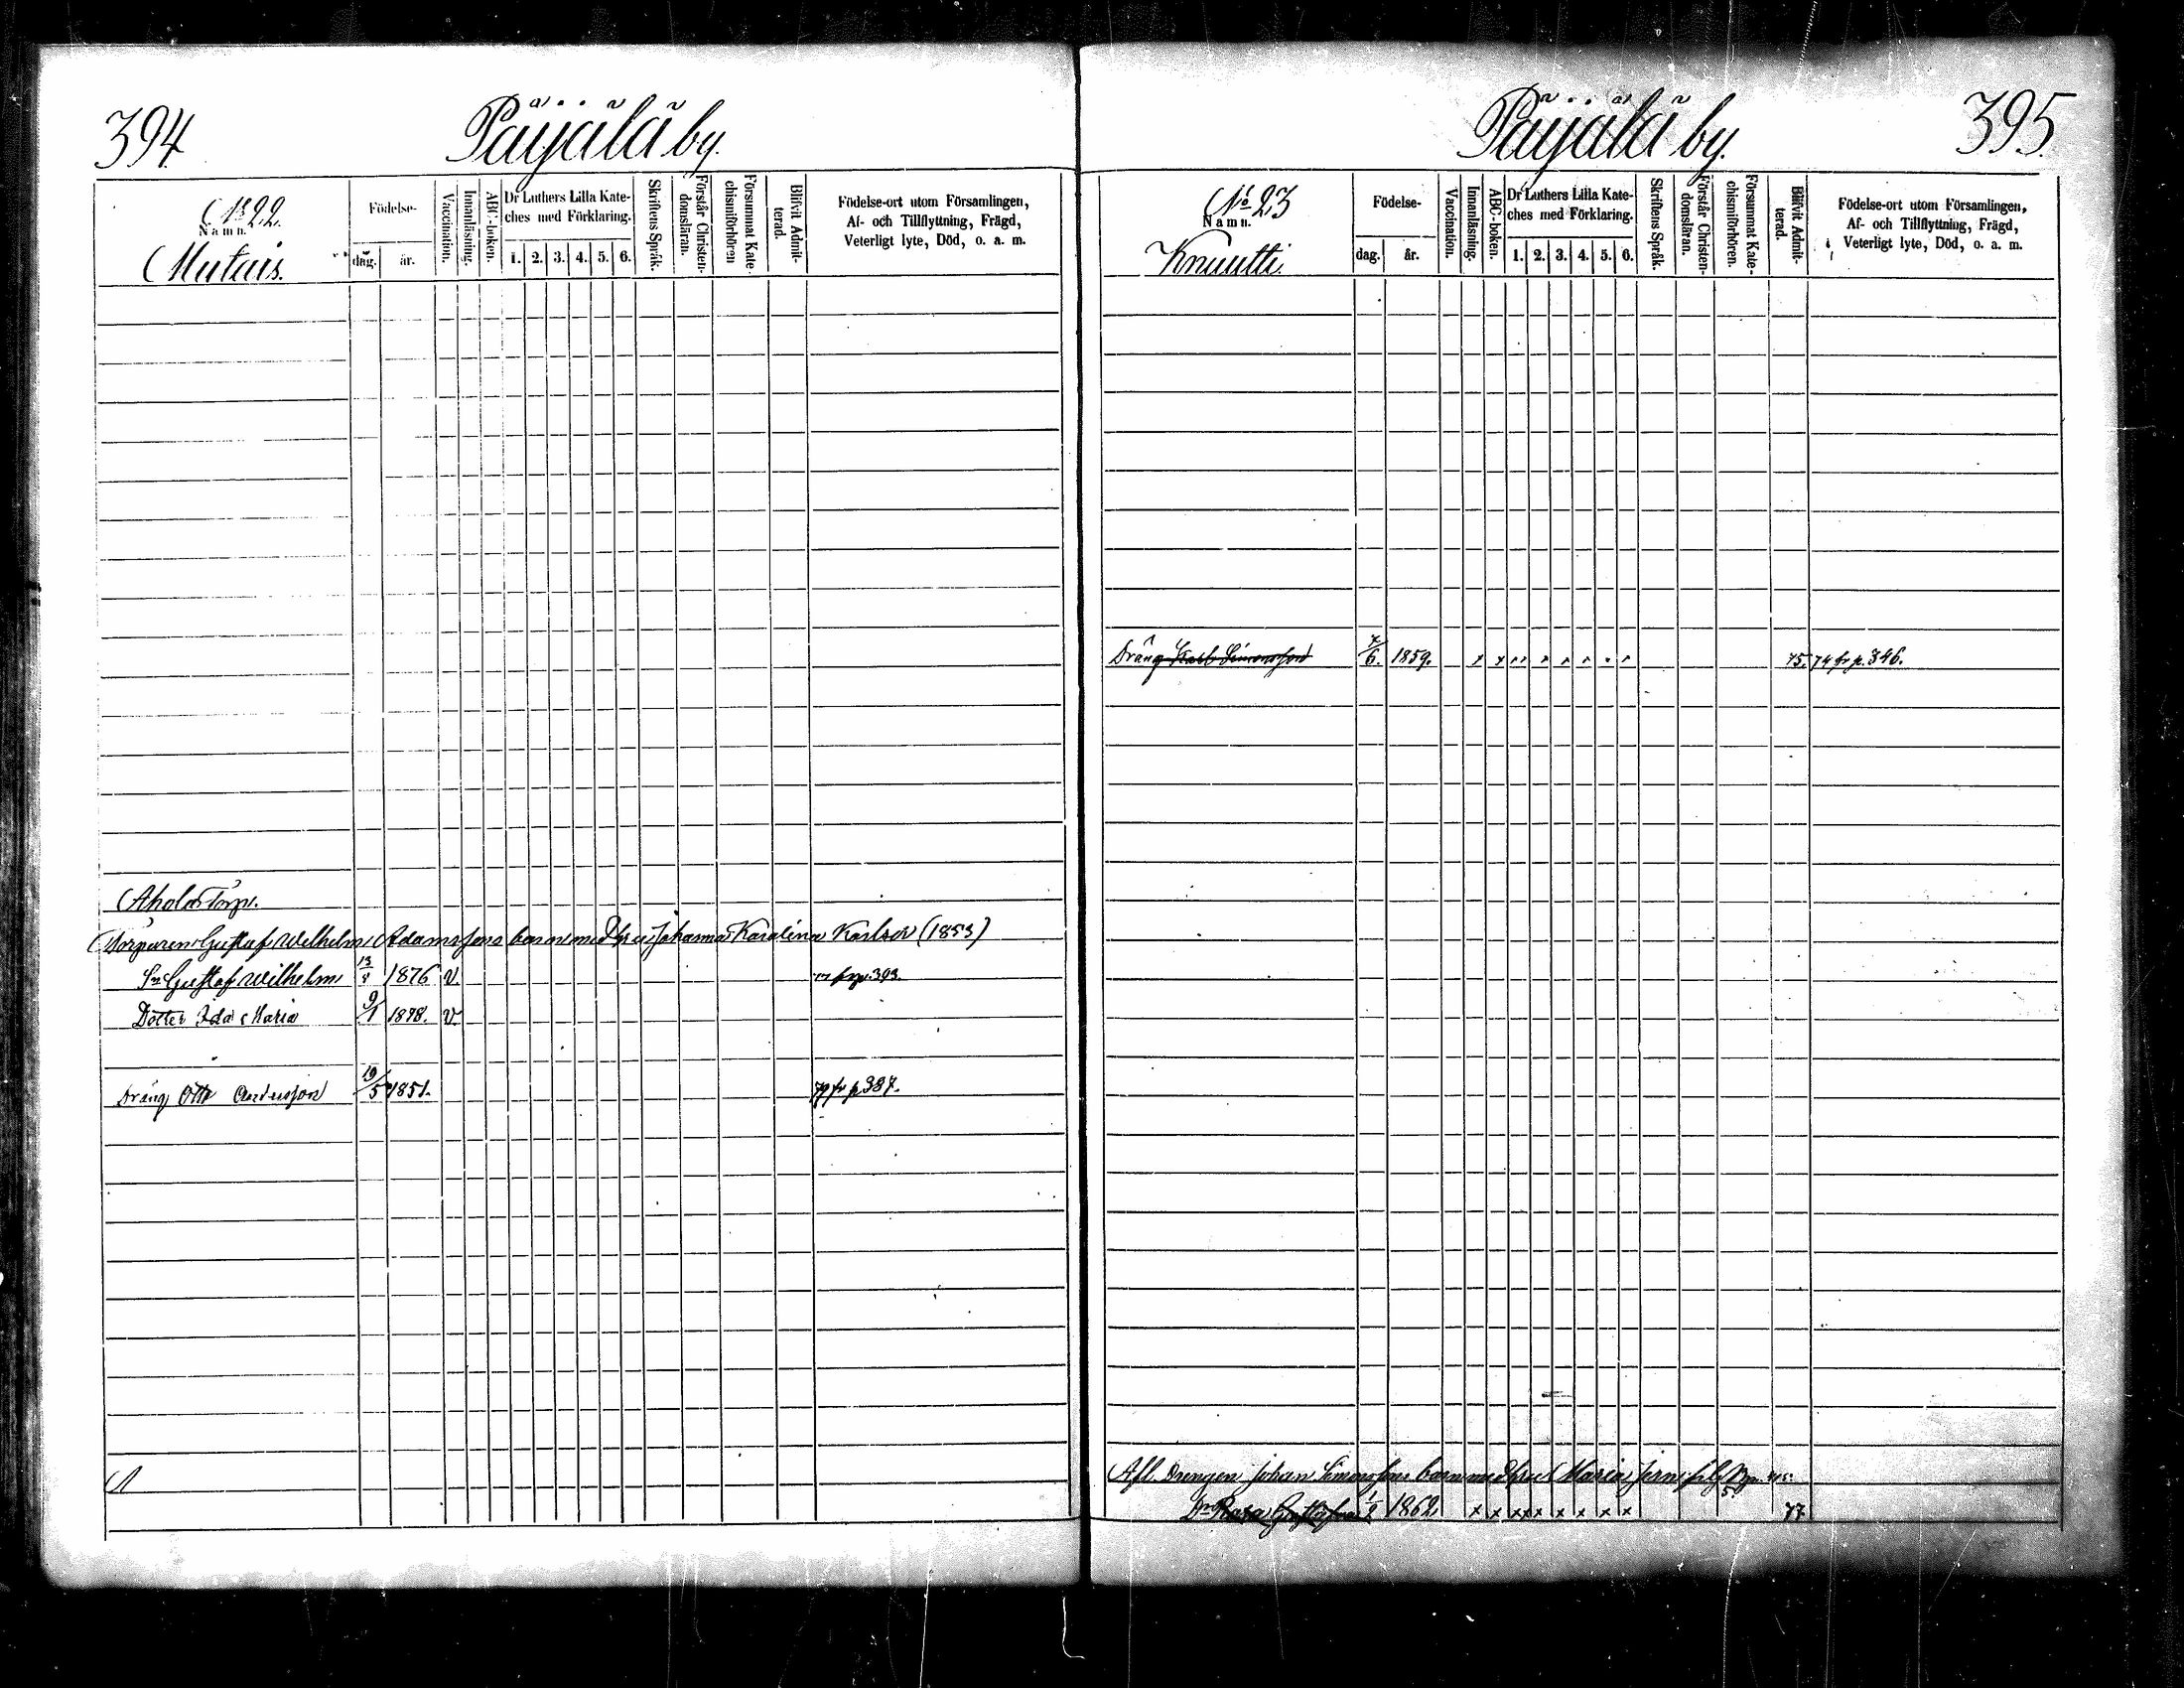 394
Päijälä by.
No 22.
Namn.
Mutais.
Födelse-
dag. år.
Vaccination.
Innanläsning.
ABC-boken.
Dr Luthers Lilla Kate-
ches med Förklaring.
1. 2. 3. 4. 5. 6.
Skriftens Språk.
Förstår Christen-
domsläran.
Försummat Kate-
chismiförhören
Blifvit Admit-
terad.
Födelse-ort utom Församlingen,
Af- och Tillflyttning, Frägd,
Veterligt lyte, Död, o. a. m.
Ahola Torp.
Torparen Gustaf Wilhelm Adamssons barn med hu Johanna Karolina Karlsdr (1853)
Sn Gustaf Wilhelm 13/8 1876 V. 77 fr p. 393.
Dotter Ida Maria 9/1 1878. V.
Dräng Otto Andersson 19/5 1851. 79 fr p 387.
Päijälä by.
395.
No 23
Namn.
Knuutti.
Födelse-
dag. år.
Vaccination.
Innanläsning.
ABC-boken.
Dr Luthers Lilla Kate-
ches med Förklaring.
1. 2. 3. 4. 5. 6.
Skriftens Språk.
Förstår Christen-
domsläran.
Försummat Kate-
chismiförhören.
Blifvit Admit-
terad.
Födelse-ort utom Församlingen,
Af- och Tillflyttning, Frägd,
Veterligt lyte, Död, o. a. m.
Dräng Karl Simonsson 1859. x x x x x x x x x 75. 74 fr p. 346.
Afl. Drengen Johan Simonssons barn med hu Maria
Dr Rosa Gustafva 1/2 1862 x x x x x x x x x 77.